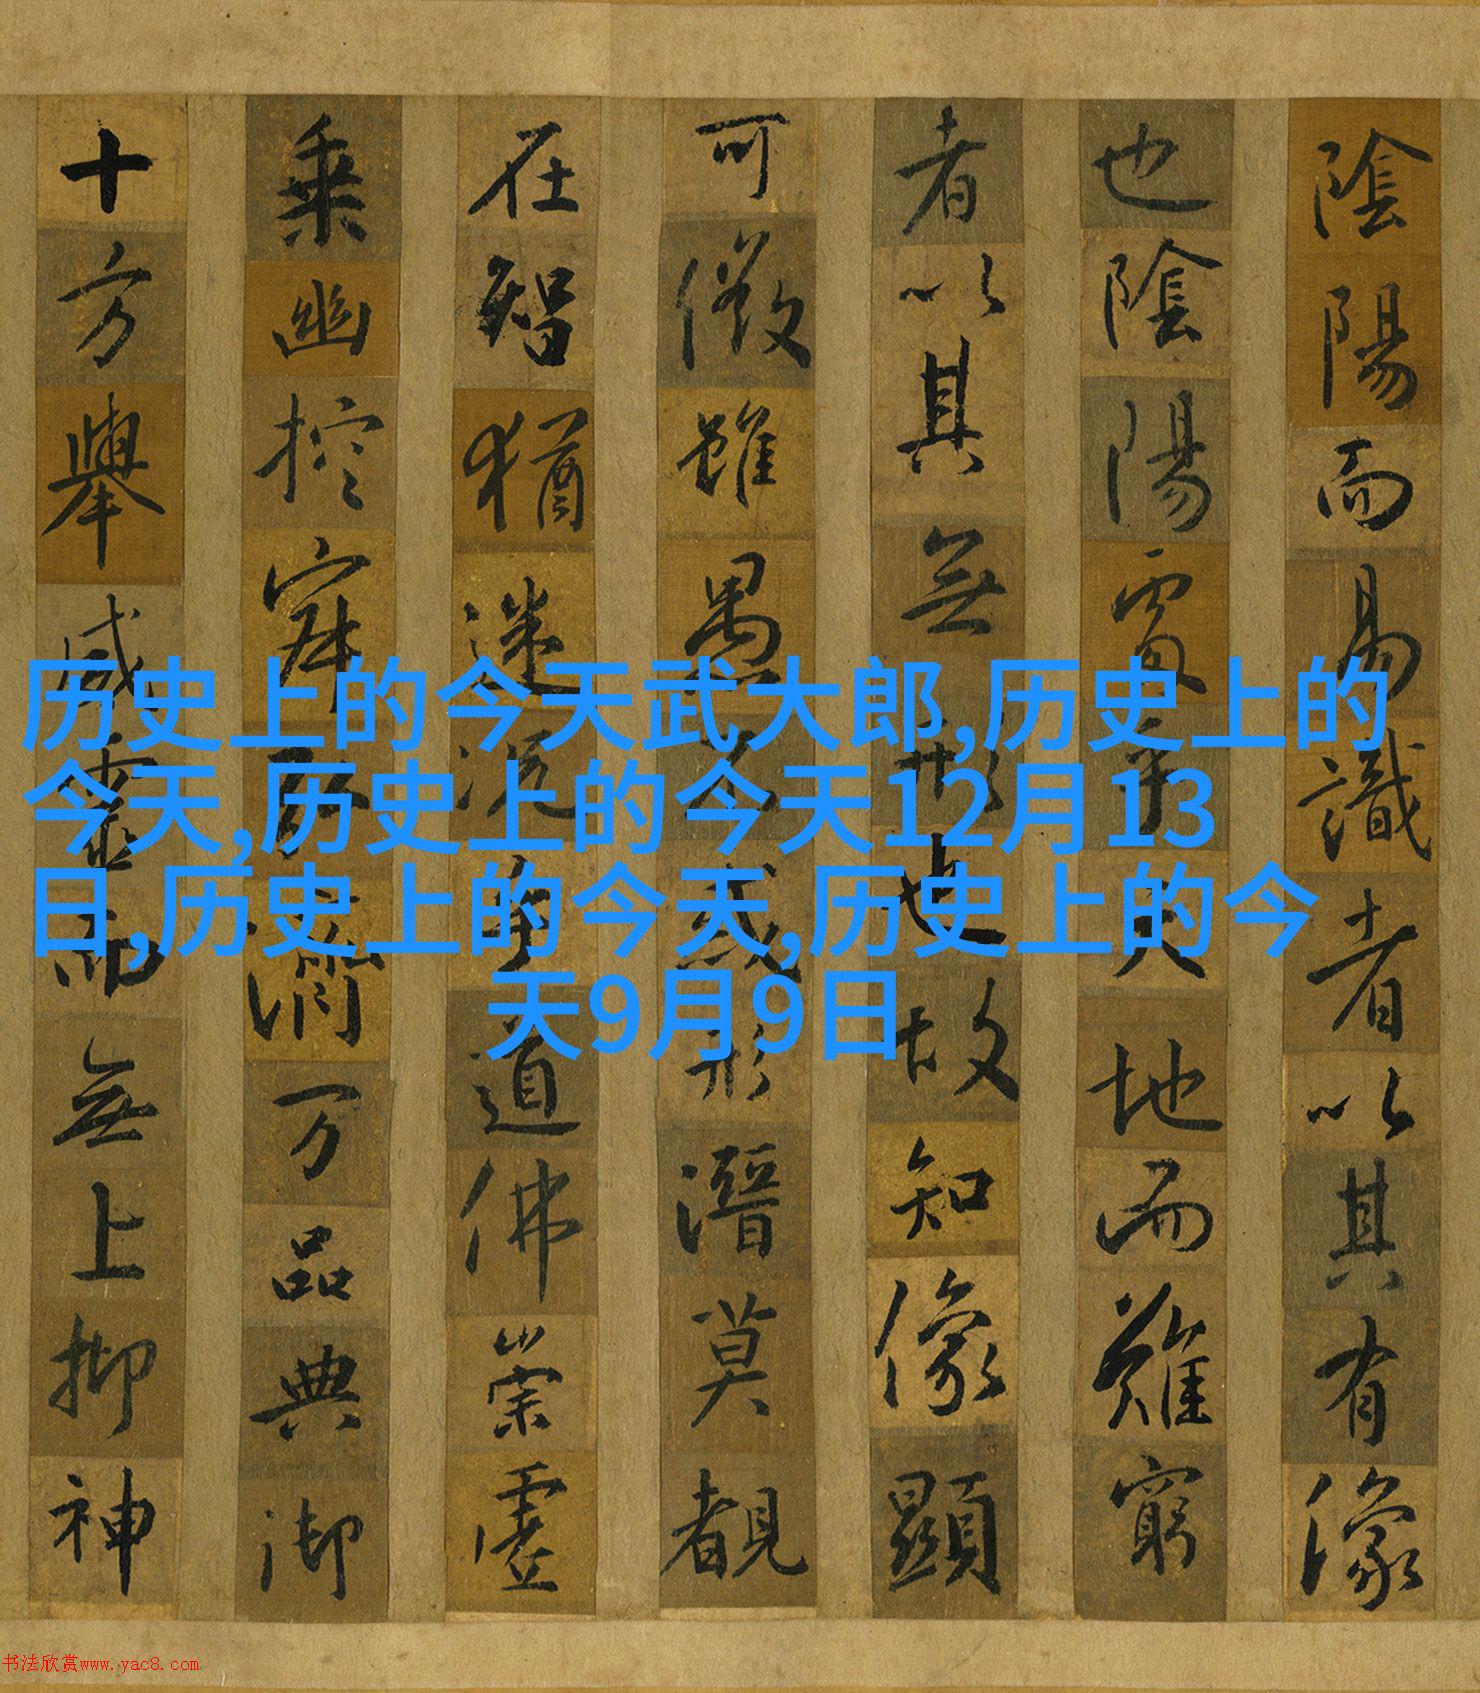 陰陽而易識者以其有像
也陰陽處乎天地而難窮
者以其無形也故知像顯
可徵雖愚不惑形潛莫覩
在智猶迷況乎道佛崇虛
乘幽控寂弘濟万品典御
十方舉威靈而無上抑神
历史上的今天武大郎,历史上的
今天,历史上的今天12月13
日,历史上的今天,历史上的今
天9月9日
书法欣赏www.yac8.com